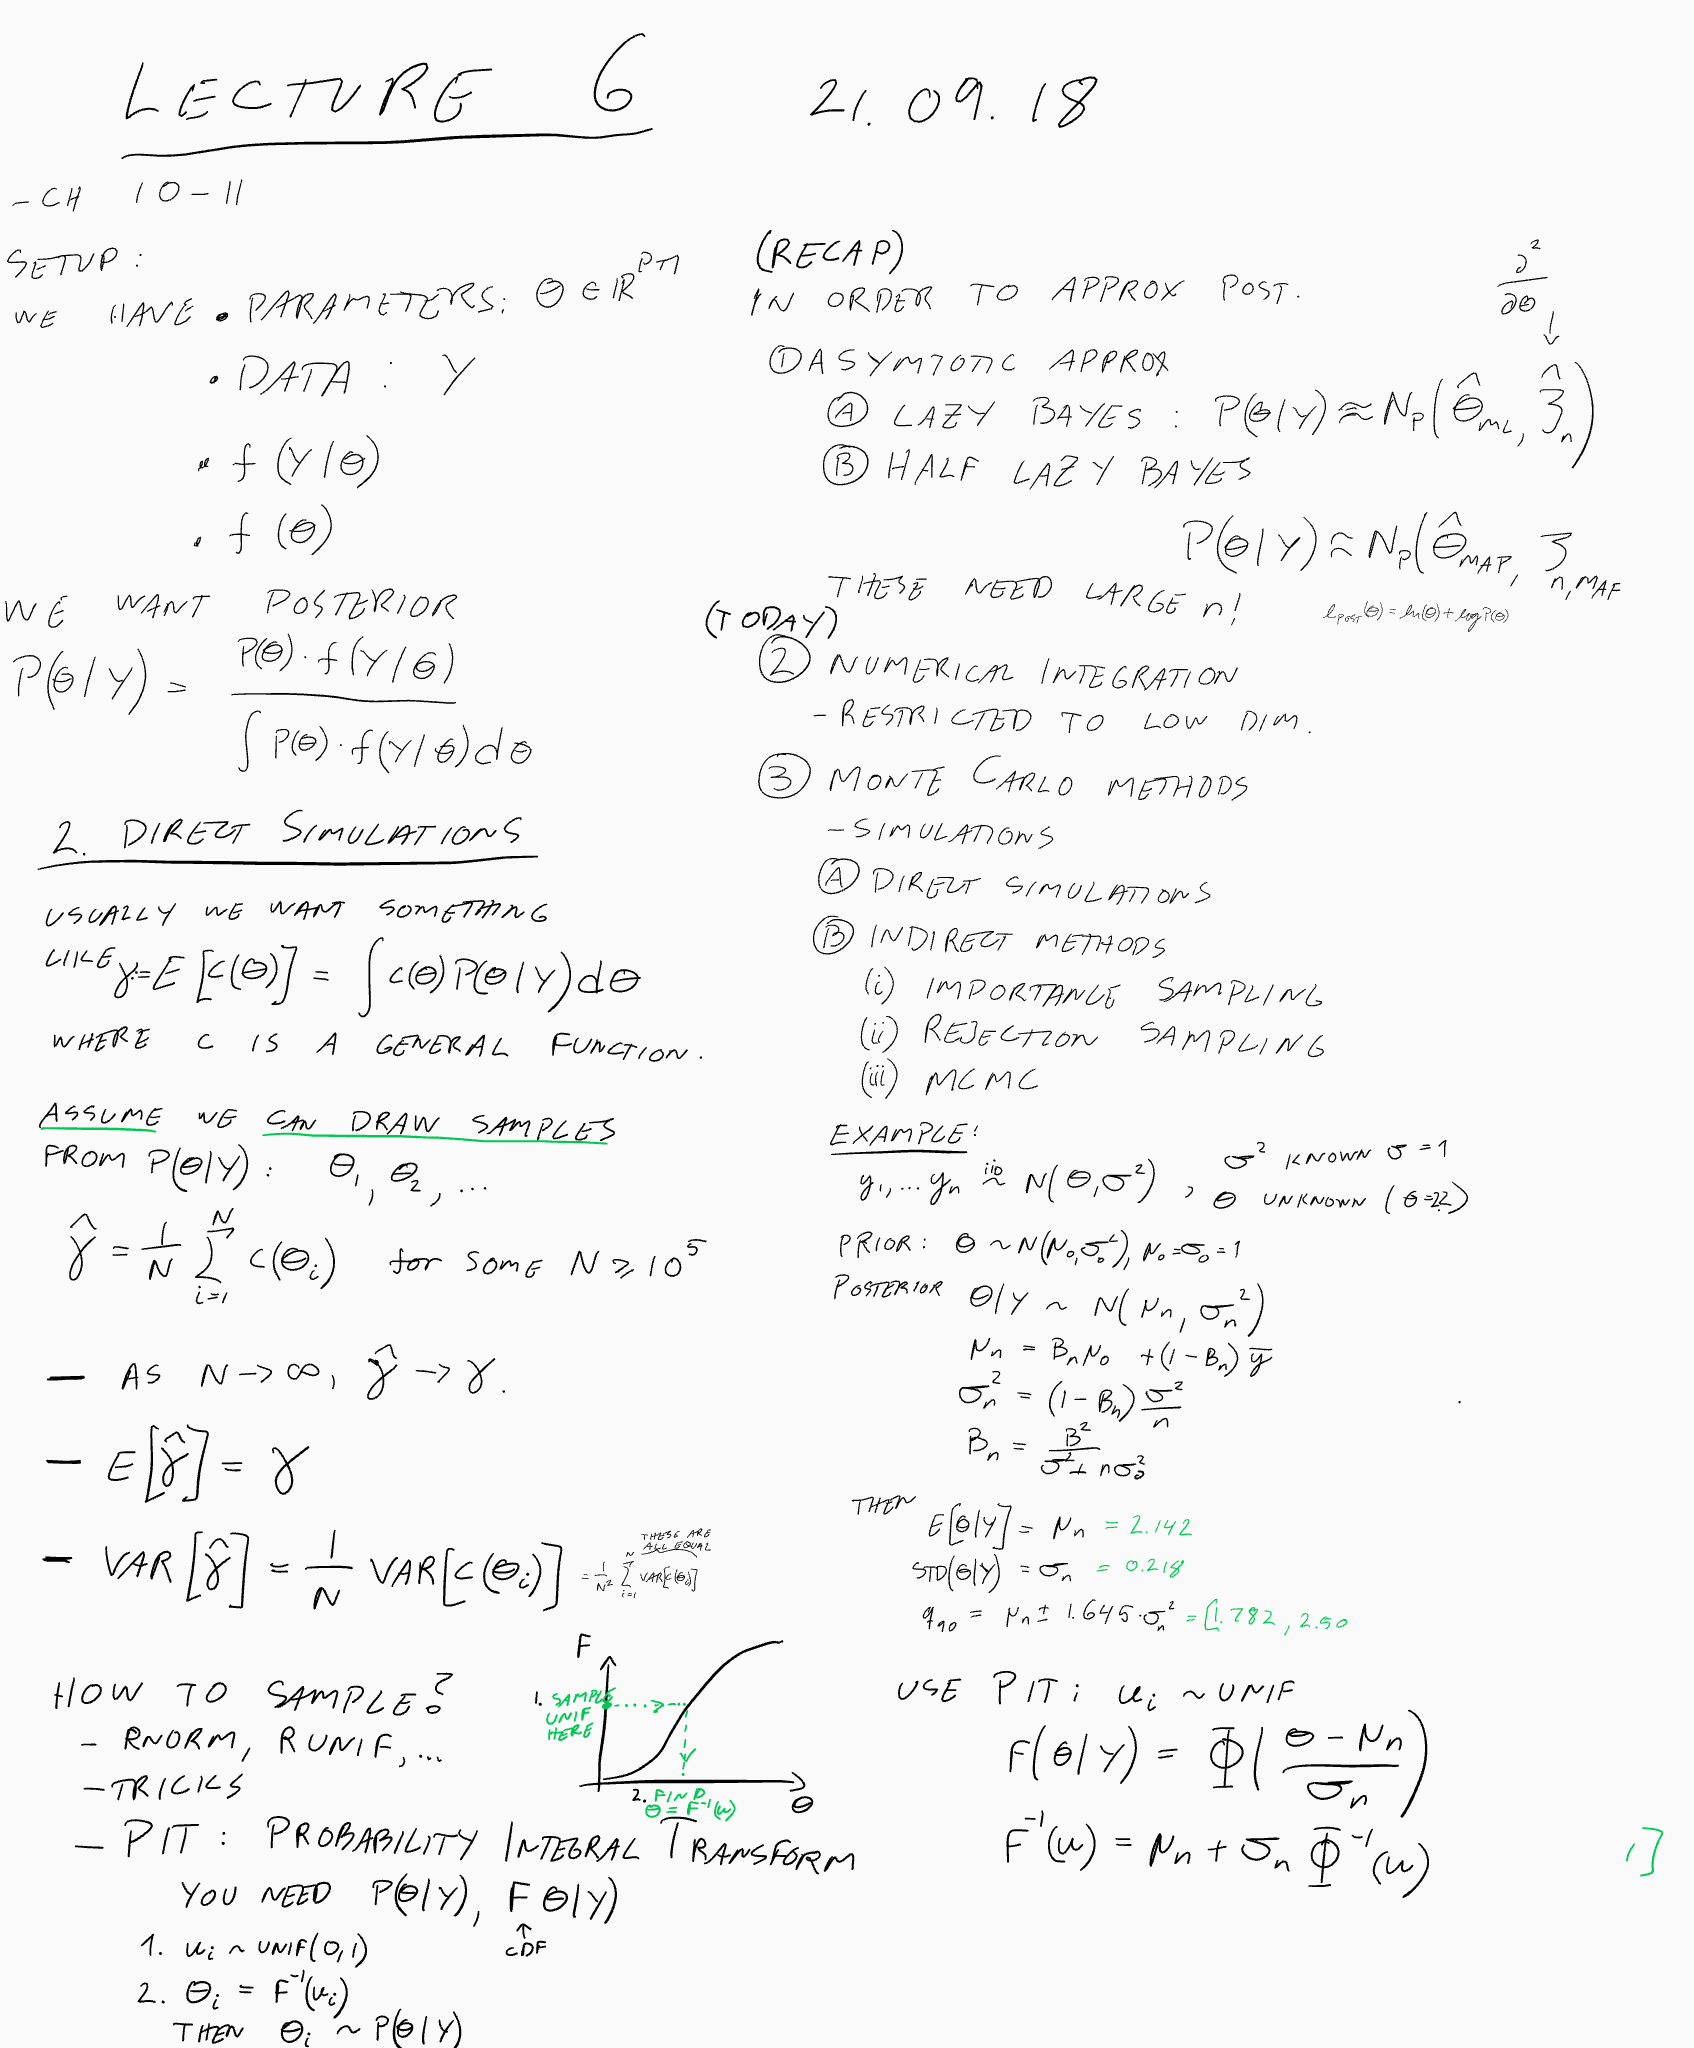 LECTURE 6 21.09.18
- CH 10-11
SETUP:
WE HAVE • PARAMETERS: Θ ∈ ℝ
• DATA: Y
• f(Y|Θ)
• f(Θ)
WE WANT POSTERIOR
P(Θ|Y) = P(Θ)·f(Y|Θ) / ∫P(Θ)·f(Y|Θ)dΘ
2. DIRECT SIMULATIONS
USUALLY WE WANT SOMETHING
LIKE γ:=E[C(Θ)] = ∫C(Θ)P(Θ|Y)dΘ
WHERE C IS A GENERAL FUNCTION.
ASSUME WE CAN DRAW SAMPLES
FROM P(Θ|Y): Θ₁, Θ₂, ...
γ̂ = 1/N Σ_{i=1}^{N} C(Θᵢ) for SOME N ⩾ 10⁵
- AS N → ∞, γ̂ → γ.
- E[γ̂] = γ
- VAR[γ̂] = 1/N VAR[C(Θᵢ)] = 1/N² Σ_{i=1}^{N} VAR[C(Θᵢ)]
THESE ARE
ALL EQUAL
HOW TO SAMPLE?
- RNORM, RUNIF, ...
- TRICKS
F
1. SAMPLE
UNIF
HERE
2. FIND
Θ = F⁻¹(u)
Θ
- PIT: PROBABILITY INTEGRAL TRANSFORM
YOU NEED P(Θ|Y), F Θ|Y)
↑
CDF
1. uᵢ ~ UNIF(0,1)
2. Θᵢ = F⁻¹(uᵢ)
THEN Θᵢ ~ P(Θ|Y)
(RECAP)
IN ORDER TO APPROX POST.
∂²/∂Θ
↓
① ASYMTOTIC APPROX
Ⓐ LAZY BAYES: P(Θ|Y) ≈ N_P(Θ̂_ML, Ĵ_n)
Ⓑ HALF LAZY BAYES
P(Θ|Y) ≈ N_P(Θ̂_MAP, J_n,MAP
THESE NEED LARGE n!
l_POST(Θ) = ln(Θ) + log P(Θ)
(TODAY)
② NUMERICAL INTEGRATION
- RESTRICTED TO LOW DIM.
③ MONTE CARLO METHODS
- SIMULATIONS
Ⓐ DIRECT SIMULATIONS
Ⓑ INDIRECT METHODS
(i) IMPORTANCE SAMPLING
(ii) REJECTION SAMPLING
(iii) MCMC
EXAMPLE:
y₁, ... yₙ iid ~ N(Θ, σ²), σ² KNOWN σ = 1
Θ UNKNOWN (Θ=2.2)
PRIOR: Θ ~ N(μ₀, σ₀²), μ₀=σ₀=1
POSTERIOR Θ|Y ~ N(μₙ, σₙ²)
μₙ = Bₙμ₀ + (1-Bₙ)ȳ
σₙ² = (1-Bₙ) σ²/n
Bₙ = B²/(σ² + nσ₀²)
THEN
E[Θ|Y] = μₙ = 2.142
STD(Θ|Y) = σₙ = 0.218
q₉₀ = μₙ ± 1.645·σₙ² = [1.782, 2.50
USE PIT: uᵢ ~ UNIF
F(Θ|Y) = Φ((Θ-μₙ)/σₙ)
F⁻¹(u) = μₙ + σₙ Φ⁻¹(u)
1]